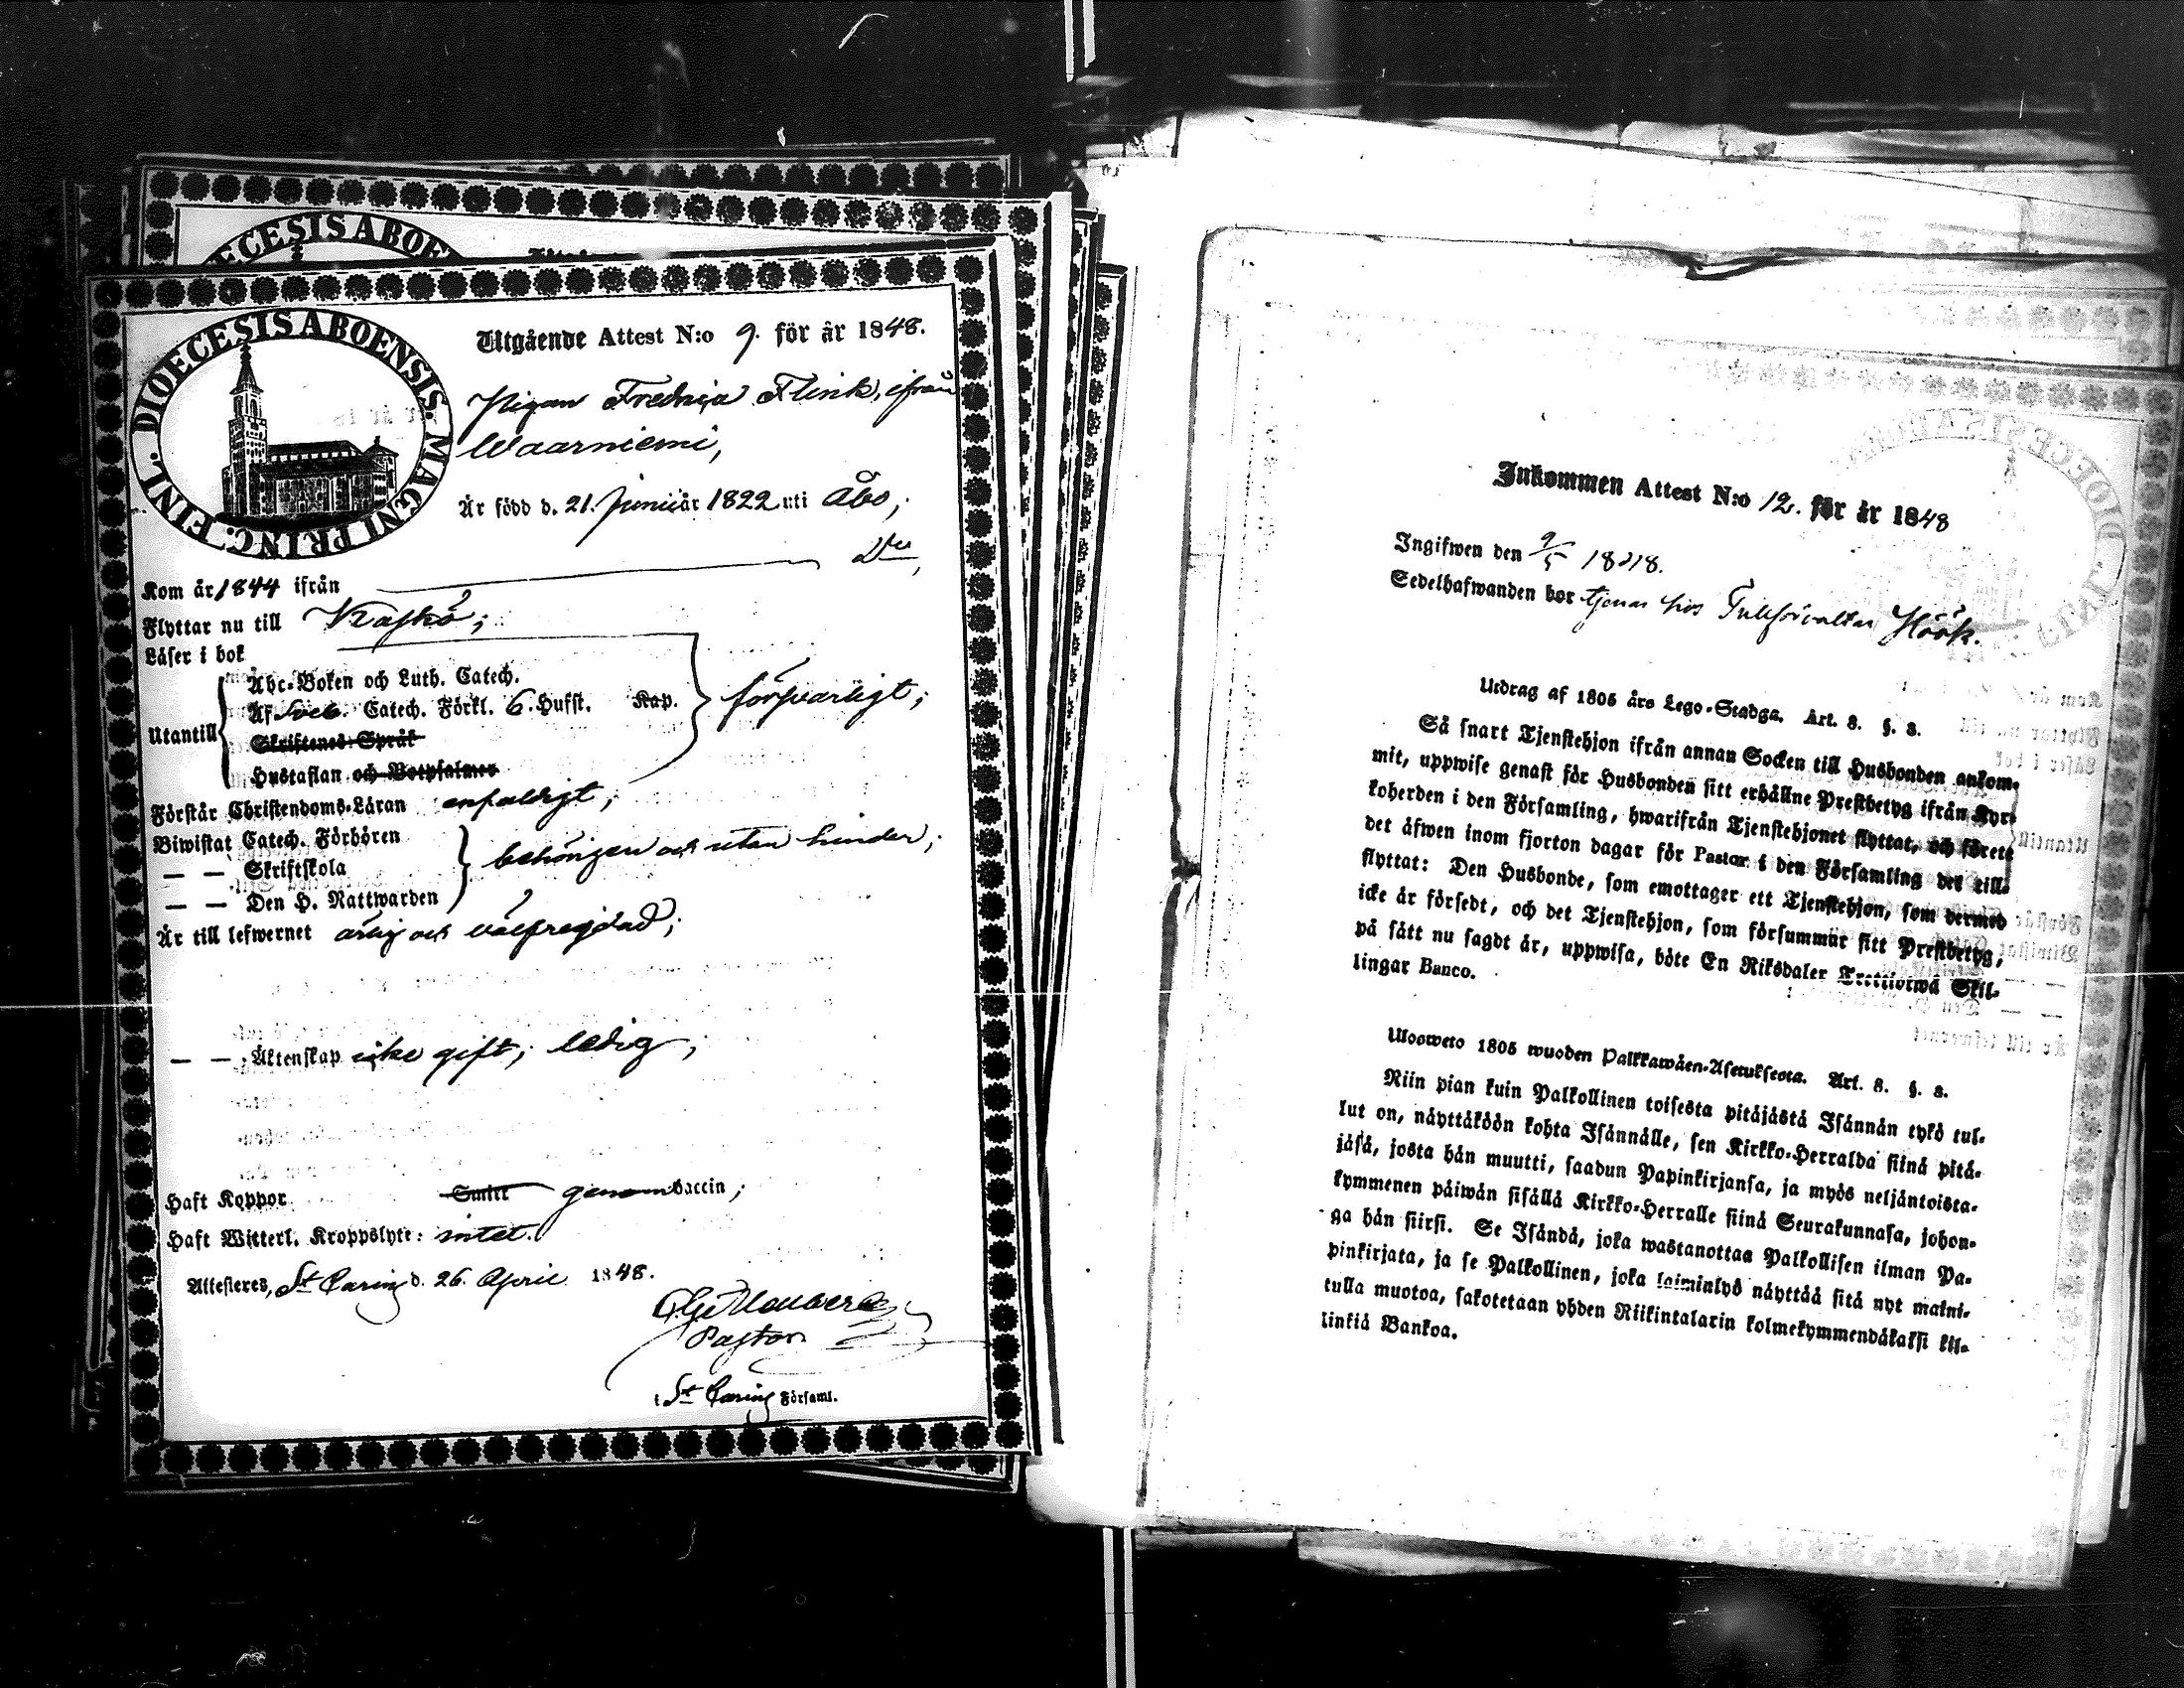 DIOECESIS ABOENSIS. MAGNI PRINC. FINL.
Utgående Attest N:o 9. för år 1848.
Pigan Fredrica Flink, ifrån
Waarniemi,
Är född d. 21. Junii år 1822 uti Åbo,
Kom år 1844 ifrån D:o,
Flyttar nu till Kaskö;
Läser i bok
Utantill
Abc-Boken och Luth. Catech.
Af Sveb. Catech. Förkl. 6. Hufst. Kap.
Skriftenes Språk
Hustaflan och Botpsalmer
försvarligt;
Förstår Christendoms-Läran enfaldigt;
Biwistat Catech. Förhören
— — Skriftskola
— — Den H. Nattwarden
behörigen och utan hinder;
Är till lefwernet ärlig och välfrejdad;
— — Äktenskap icke gift, ledig,
Haft Koppor Smitt genom vaccin;
Haft Witterl. Kroppslyte: intet.
Attesteres, St Carins d. 26. April 1848.
Pastor
i St Carins Församl.
ECESIS ABOE
Inkommen Attest N:o 12. för år 1848
Ingifwen den 9/5 1848.
Sedelhafwanden bor tjenar hos Tullförvaltar Höök.
Utdrag af 1805 års Lego-Stadga. Art. 8. §. 3.
Så snart Tjenstehjon ifrån annan Socken till Husbonden ankom-
mit, uppwise genast för Husbonden sitt erhållne Prestbetyg ifrån Kyr-
koherden i den Församling, hwarifrån Tjenstehjonet flyttat, och förete
det äfwen inom fjorton dagar för Pastor i den Församling det till-
flyttat: Den Husbonde, som emottager ett Tjenstehjon, som dermed
icke är försedt, och det Tjenstehjon, som försummar sitt Prestbetyg,
på sätt nu sagdt är, uppwisa, böte En Riksdaler Trettiotwå Skil-
lingar Banco.
Ulosweto 1805 wuoden Palkkawäen-Asetuksesta. Art. 8. §. 3.
Niin pian kuin Palkollinen toisesta pitäjästä Isännän tykö tul-
lut on, näyttäköön kohta Isännälle, sen Kirkko-Herralda siinä pitä-
jäsä, josta hän muutti, saadun Papinkirjansa, ja myös neljäntoista-
kymmenen päiwän sisällä Kirkko-Herralle siinä Seurakunnasa, johon-
ga hän siirsi. Se Isändä, joka wastanottaa Palkollisen ilman Pa-
pinkirjata, ja se Palkollinen, joka laiminlyö näyttää sitä nyt maini-
tulla muotoa, sakotetaan yhden Riikintalarin kolmekymmendäkaksi kil-
linkiä Bankoa.